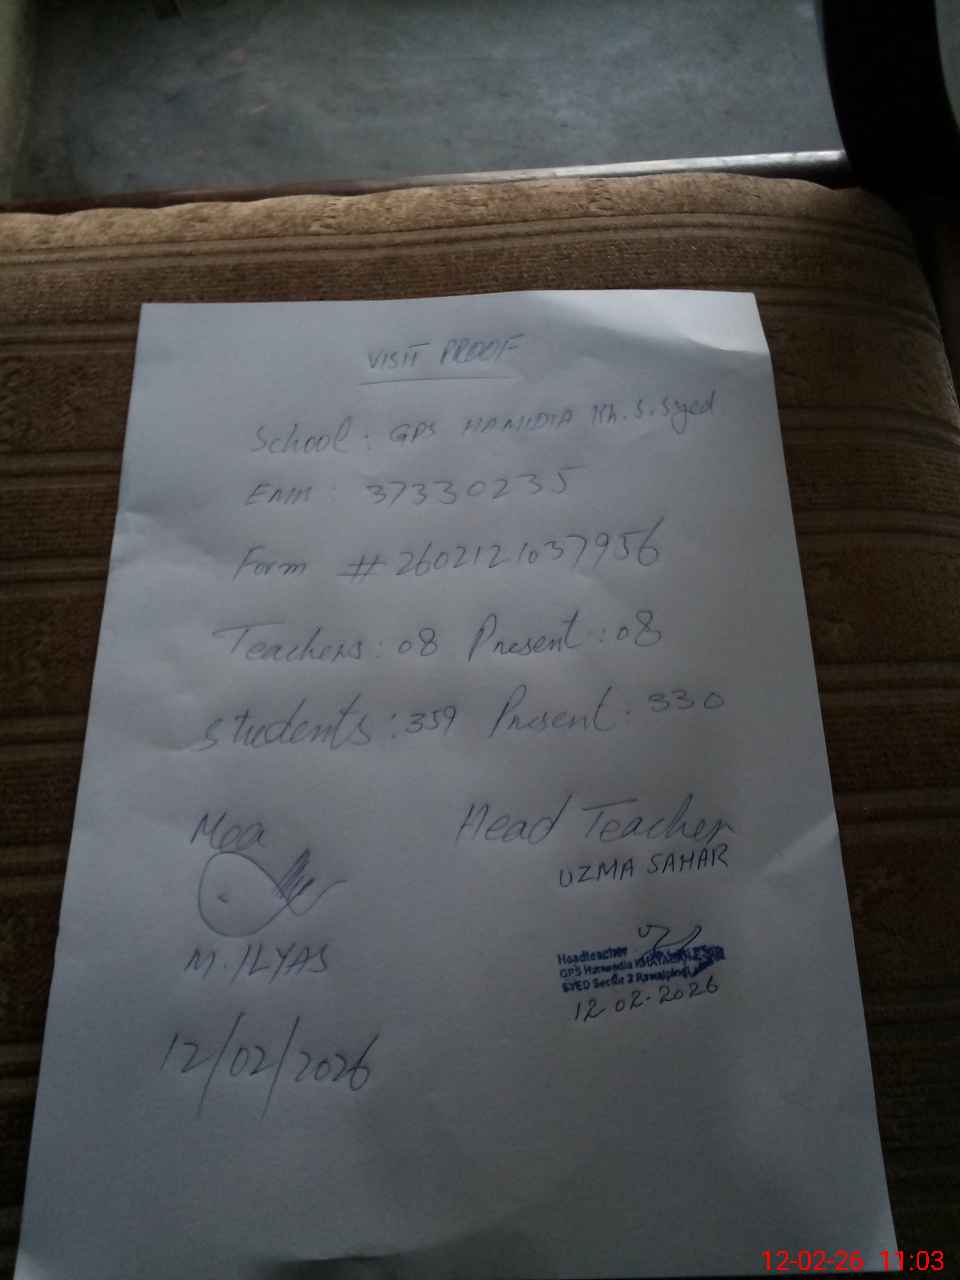 VISIT PROOF
School: GPS HAMIDIA Kh.S.Syed
Emis: 37330235
Form #2602121037956
Teachers: 08 Present: 08
students: 359 Present: 330
Mea
M. ILYAS
12/02/2026
Head Teacher
UZMA SAHAR
Headteacher
GPS Hameedia
SYED Sector 2 Rawalpindi
12 02-2026
12-02-26 11:03